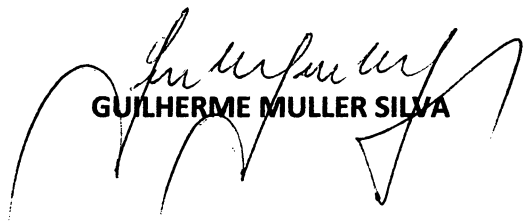 GUILHERME MULLER SILVA